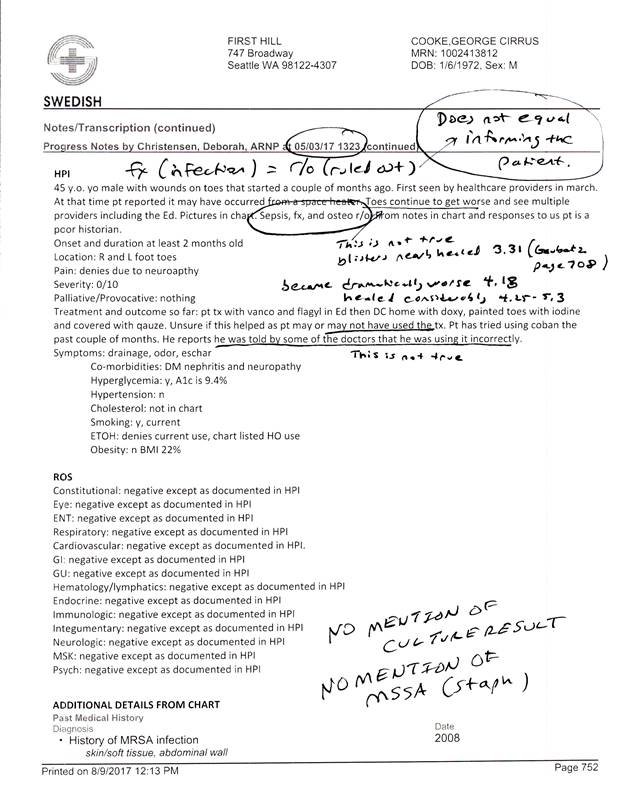 FIRST HILL
747 Broadway
Seattle WA 98122-4307
COOKE,GEORGE CIRRUS
MRN: 1002413812
DOB: 1/6/1972, Sex: M
SWEDISH
Does not equal
→ informing the
patient.
Notes/Transcription (continued)
Progress Notes by Christensen, Deborah, ARNP at 05/03/17 1323 (continued)
fx (infection) = r/o (ruled out)
HPI
45 y.o. yo male with wounds on toes that started a couple of months ago. First seen by healthcare providers in march.
At that time pt reported it may have occurred from a space heater. Toes continue to get worse and see multiple
providers including the Ed. Pictures in chart. Sepsis, fx, and osteo r/o. From notes in chart and responses to us pt is a
poor historian.
Onset and duration at least 2 months old
This is not true
Location: R and L foot toes
blisters nearly healed 3.31 (Gaubatz
page 708)
Pain: denies due to neuroapthy
Severity: 0/10
became dramatically worse 4.18
Palliative/Provocative: nothing
healed considerably 4.25-5.3
Treatment and outcome so far: pt tx with vanco and flagyl in Ed then DC home with doxy, painted toes with iodine
and covered with qauze. Unsure if this helped as pt may or may not have used the tx. Pt has tried using coban the
past couple of months. He reports he was told by some of the doctors that he was using it incorrectly.
Symptoms: drainage, odor, eschar
This is not true
Co-morbidities: DM nephritis and neuropathy
Hyperglycemia: y, A1c is 9.4%
Hypertension: n
Cholesterol: not in chart
Smoking: y, current
ETOH: denies current use, chart listed HO use
Obesity: n BMI 22%
ROS
Constitutional: negative except as documented in HPI
Eye: negative except as documented in HPI
ENT: negative except as documented in HPI
Respiratory: negative except as documented in HPI
Cardiovascular: negative except as documented in HPI.
GI: negative except as documented in HPI
GU: negative except as documented in HPI
Hematology/lymphatics: negative except as documented in HPI
Endocrine: negative except as documented in HPI
Immunologic: negative except as documented in HPI
Integumentary: negative except as documented in HPI
Neurologic: negative except as documented in HPI
MSK: negative except as documented in HPI
Psych: negative except as documented in HPI
NO MENTION OF
CULTURE RESULT
NO MENTION OF
MSSA (Staph)
ADDITIONAL DETAILS FROM CHART
Past Medical History
Diagnosis
Date
• History of MRSA infection
2008
skin/soft tissue, abdominal wall
Printed on 8/9/2017 12:13 PM
Page 752